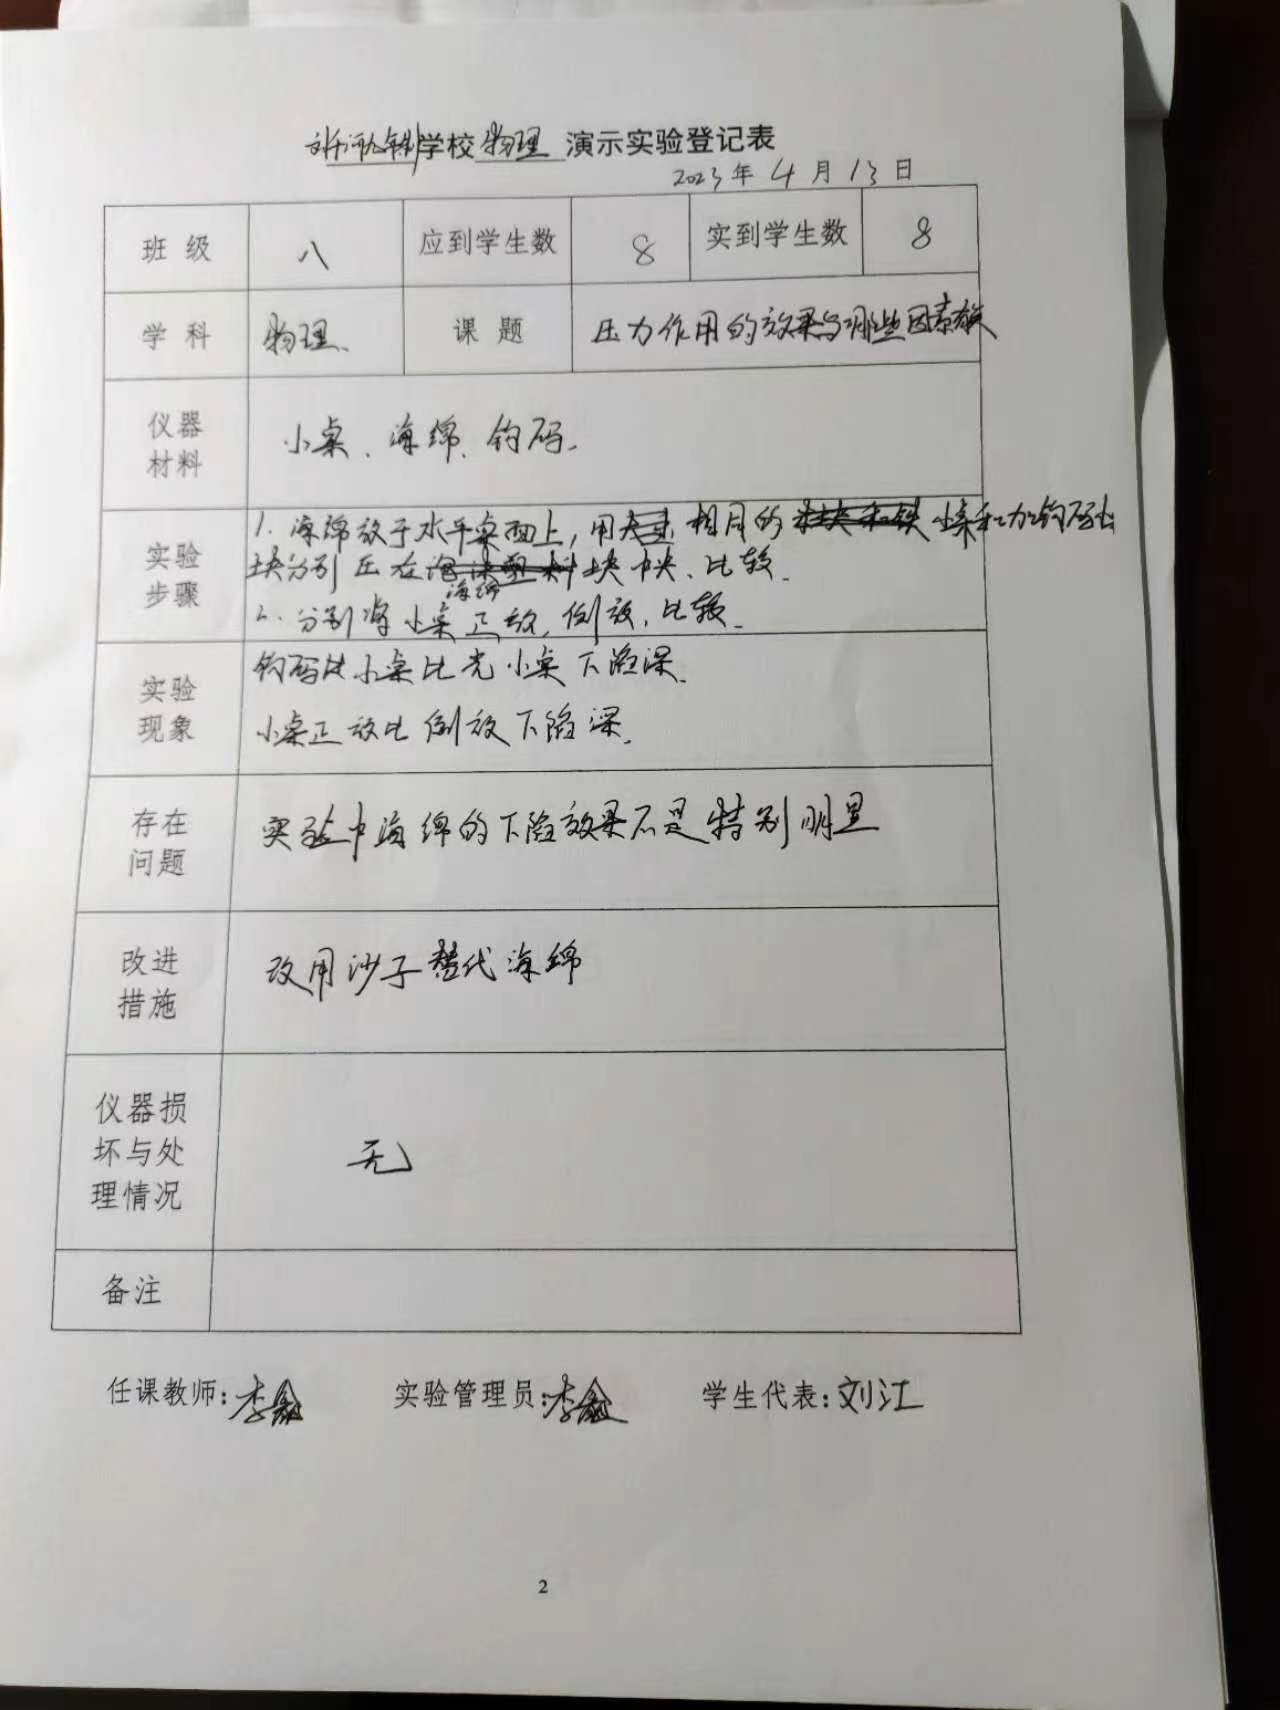 学校 物理 演示实验登记表
2023年 4月 13日
班级 八 应到学生数 8 实到学生数 8
学科 物理、 课题 压力作用的效果与哪些因素有关
仪器材料 小桌、海绵、钩码、
实验步骤
1. 海绵放于水平桌面上,用 相同的 小桌和加钩码
块分别压在海绵块中央、比较、
2. 分别将小桌正放、倒放、比较、
实验现象
钩码 小桌比光小桌下陷深、
小桌正放比倒放下陷深、
存在问题 实验中海绵的下陷效果不是特别明显
改进措施 改用沙子替代海绵
仪器损坏与处理情况 无
备注
任课教师:李鑫 实验管理员:李鑫 学生代表:刘江
2